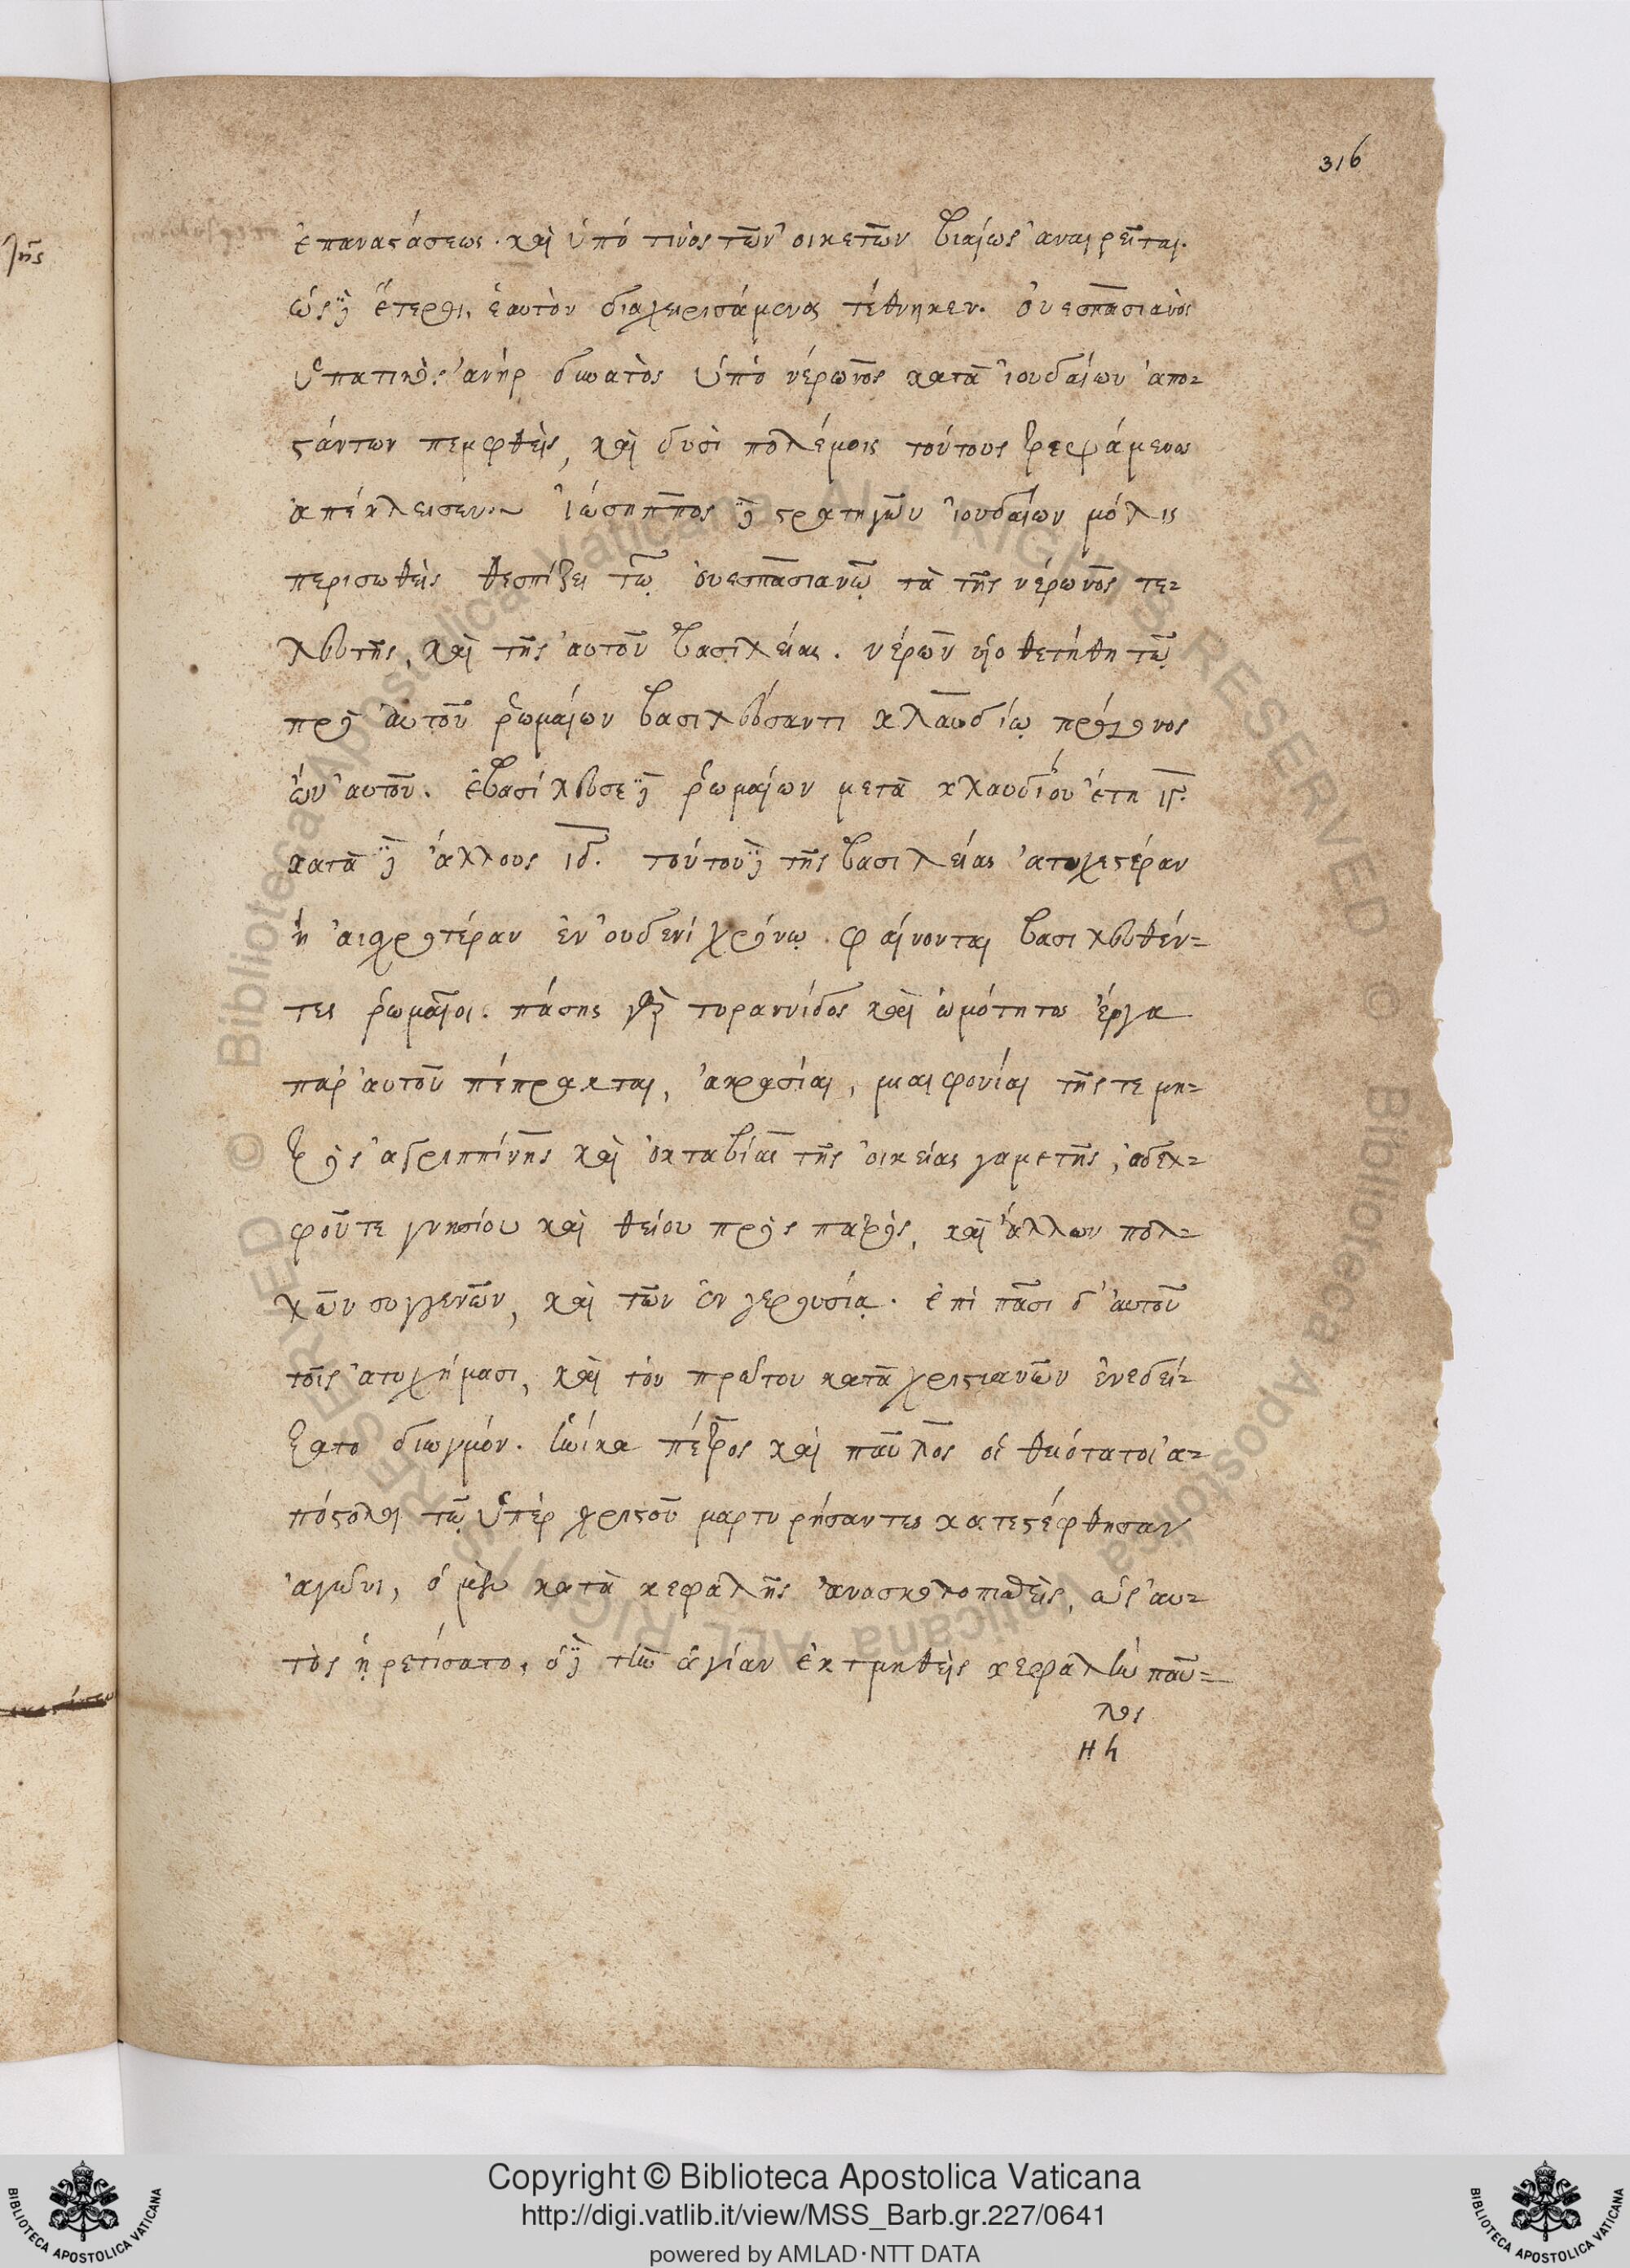 316
ἐπαναστάσεως. καὶ ὑπό τινος τῶν οἰκετῶν βιαίως ἀναιρεῖται.
ὡς δὲ ἕτεροι, ἑαυτὸν διαχειρισάμενος τέθνηκεν. Οὐεσπασιανὸς
ὑπατικὸς ἀνὴρ δυνατὸς ὑπὸ νέρωνος κατὰ ἰουδαίων ἀπο-
στάντων πεμφθεὶς, καὶ δυσὶ πολέμοις τούτους τρεψάμενος
ἀπέκλεισεν.~ Ἰώσηππος δὲ στρατηγῶν ἰουδαίων μόλις
περισωθεὶς θεσπίζει τῷ οὐεσπασιανῷ τὰ τῆς νέρωνος τε-
λευτῆς, καὶ τῆς αὐτοῦ βασιλείας. νέρων υἱοθετήθη τῷ
πρὸ αὐτοῦ ῥωμαίων βασιλεύσαντι κλαυδίῳ πρόγονος
ὢν αὐτοῦ. ἐβασίλευσε δὲ ῥωμαίων μετὰ κλαυδίου ἔτη ιγ.
κατὰ δὲ ἄλλους ιδ. τούτου δὲ τῆς βασιλείας ἀτυχεστέραν
ἢ αἰσχροτέραν ἐν οὐδενὶ χρόνῳ φαίνονται βασιλευθέν-
τες ῥωμαῖοι. πάσης γὰρ τυραννίδος καὶ ὠμότητος ἔργα
παρ' αὐτοῦ πέπρακται, ἀκρασίαι, μιαιφονίαι τῆς τε μη-
τρὸς ἀγριππίνης καὶ ὀκταβίας τῆς οἰκείας γαμετῆς, ἀδελ-
φοῦ τε γνησίου καὶ θείου πρὸς πατρὸς, καὶ ἄλλων πολ-
λῶν συγγενῶν, καὶ τῶν ἐν γερουσίᾳ. ἐπὶ πᾶσι δ' αὐτοῦ
τοῖς ἀτυχήμασι, καὶ τὸν πρῶτον κατὰ χριστιανῶν ἐνεδεί-
ξατο διωγμόν. ἡνίκα πέτρος καὶ παῦλος οἱ θειότατοι ἀ-
πόστολοι τῷ ὑπὲρ χριστοῦ μαρτυρήσαντες κατεστέφθησαν
ἀγῶνι, ὁ μὲν κατὰ κεφαλῆς ἀνασκολοπισθεὶς, ὡς αὐ-
τὸς ᾑρετίσατο, ὁ δὲ τὴν ἁγίαν ἐκτμηθεὶς κεφαλὴν παῦ-
λος
Hh
Copyright © Biblioteca Apostolica Vaticana
http://digi.vatlib.it/view/MSS_Barb.gr.227/0641
powered by AMLAD·NTT DATA
BIBLIOTECA APOSTOLICA VATICANA
BIBLIOTECA APOSTOLICA VATICANA
© Biblioteca Apostolica Vaticana ALL RIGHTS RESERVED © Biblioteca Apostolica Vaticana ALL RIGHTS RESERVED